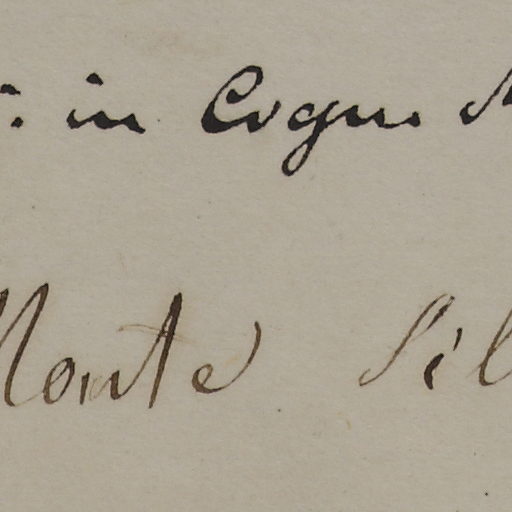 in Cogne
Monte Sil